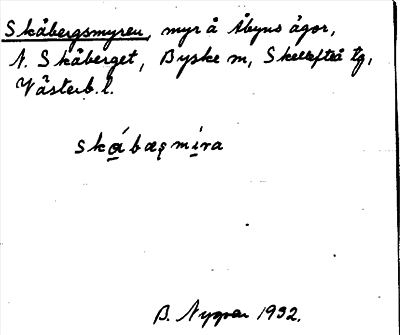 Skåbergsmyren, myr å Åbyns ägor,
N. Skåberget, Byske sn, Skellefteå tg,
Västerb. l.
skɑ́bæʂmíra
B. Nygren 1932.